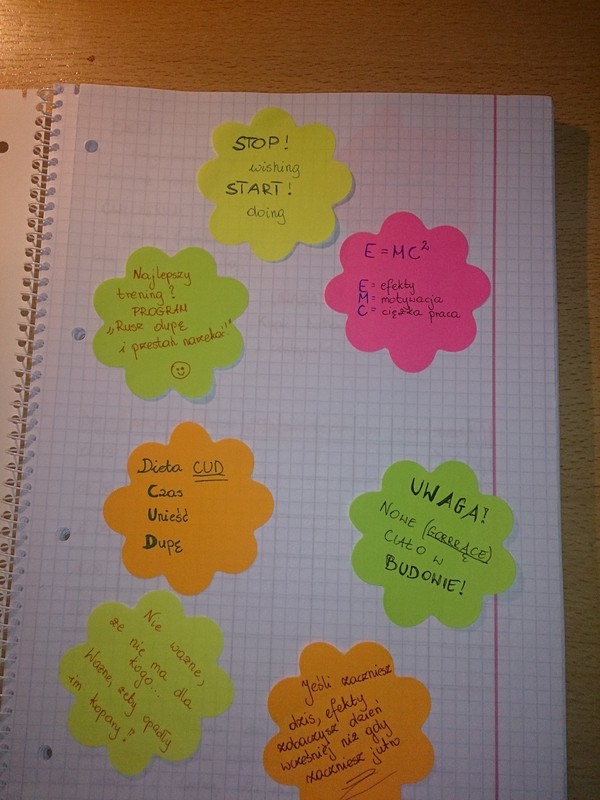 STOP!
wishing
START!
doing
E = MC²
E = efekty
M = motywacja
C = ciężka praca
Najlepszy
trening?
PROGRAM
„Rusz dupę
i przestań narzekać!"
Dieta CUD
Czas
Unieść
Dupę
UWAGA!
NOWE (GORRRĄCE)
CIAŁO W
BUDOWIE!
Nie ważne,
że nie ma dla
kogo...
Ważne, żeby opadły
im kopary!
Jeśli zaczniesz
dziś, efekty
zobaczysz dzień
wcześniej niż gdy
zaczniesz jutro